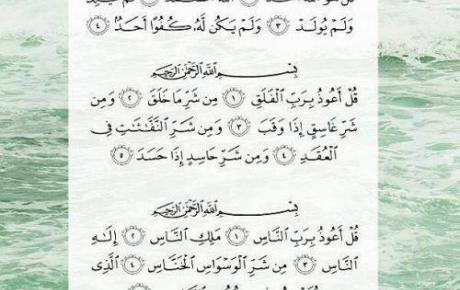 قُلْ هُوَ اللَّهُ أَحَدٌ ۝١ اللَّهُ الصَّمَدُ ۝٢ لَمْ يَلِدْ
وَلَمْ يُولَدْ ۝٣ وَلَمْ يَكُن لَّهُ كُفُوًا أَحَدٌ ۝٤
بِسْمِ اللَّهِ الرَّحْمَٰنِ الرَّحِيمِ
قُلْ أَعُوذُ بِرَبِّ الْفَلَقِ ۝١ مِن شَرِّ مَا خَلَقَ ۝٢ وَمِن
شَرِّ غَاسِقٍ إِذَا وَقَبَ ۝٣ وَمِن شَرِّ النَّفَّاثَاتِ فِي
الْعُقَدِ ۝٤ وَمِن شَرِّ حَاسِدٍ إِذَا حَسَدَ ۝٥
بِسْمِ اللَّهِ الرَّحْمَٰنِ الرَّحِيمِ
قُلْ أَعُوذُ بِرَبِّ النَّاسِ ۝١ مَلِكِ النَّاسِ ۝٢ إِلَٰهِ
النَّاسِ ۝٣ مِن شَرِّ الْوَسْوَاسِ الْخَنَّاسِ ۝٤ الَّذِي